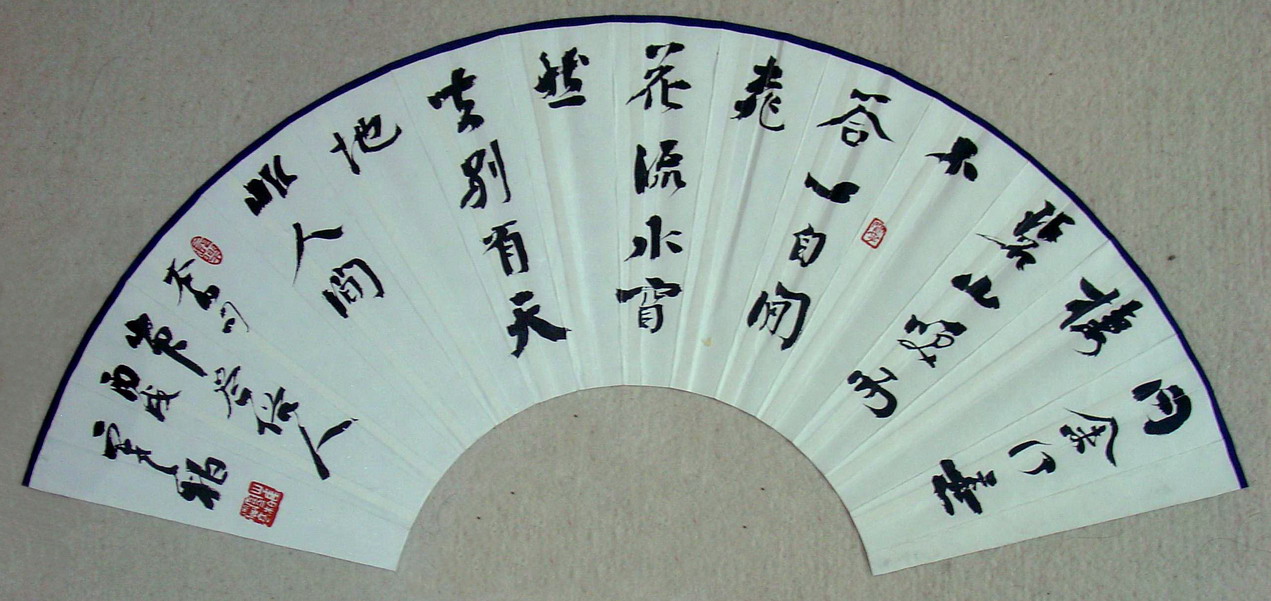 问余何意
棲
碧山笑而
不
答心自闲
桃
花流水窅
然
去别有天
地
非人间
山中答俗人
丙戌